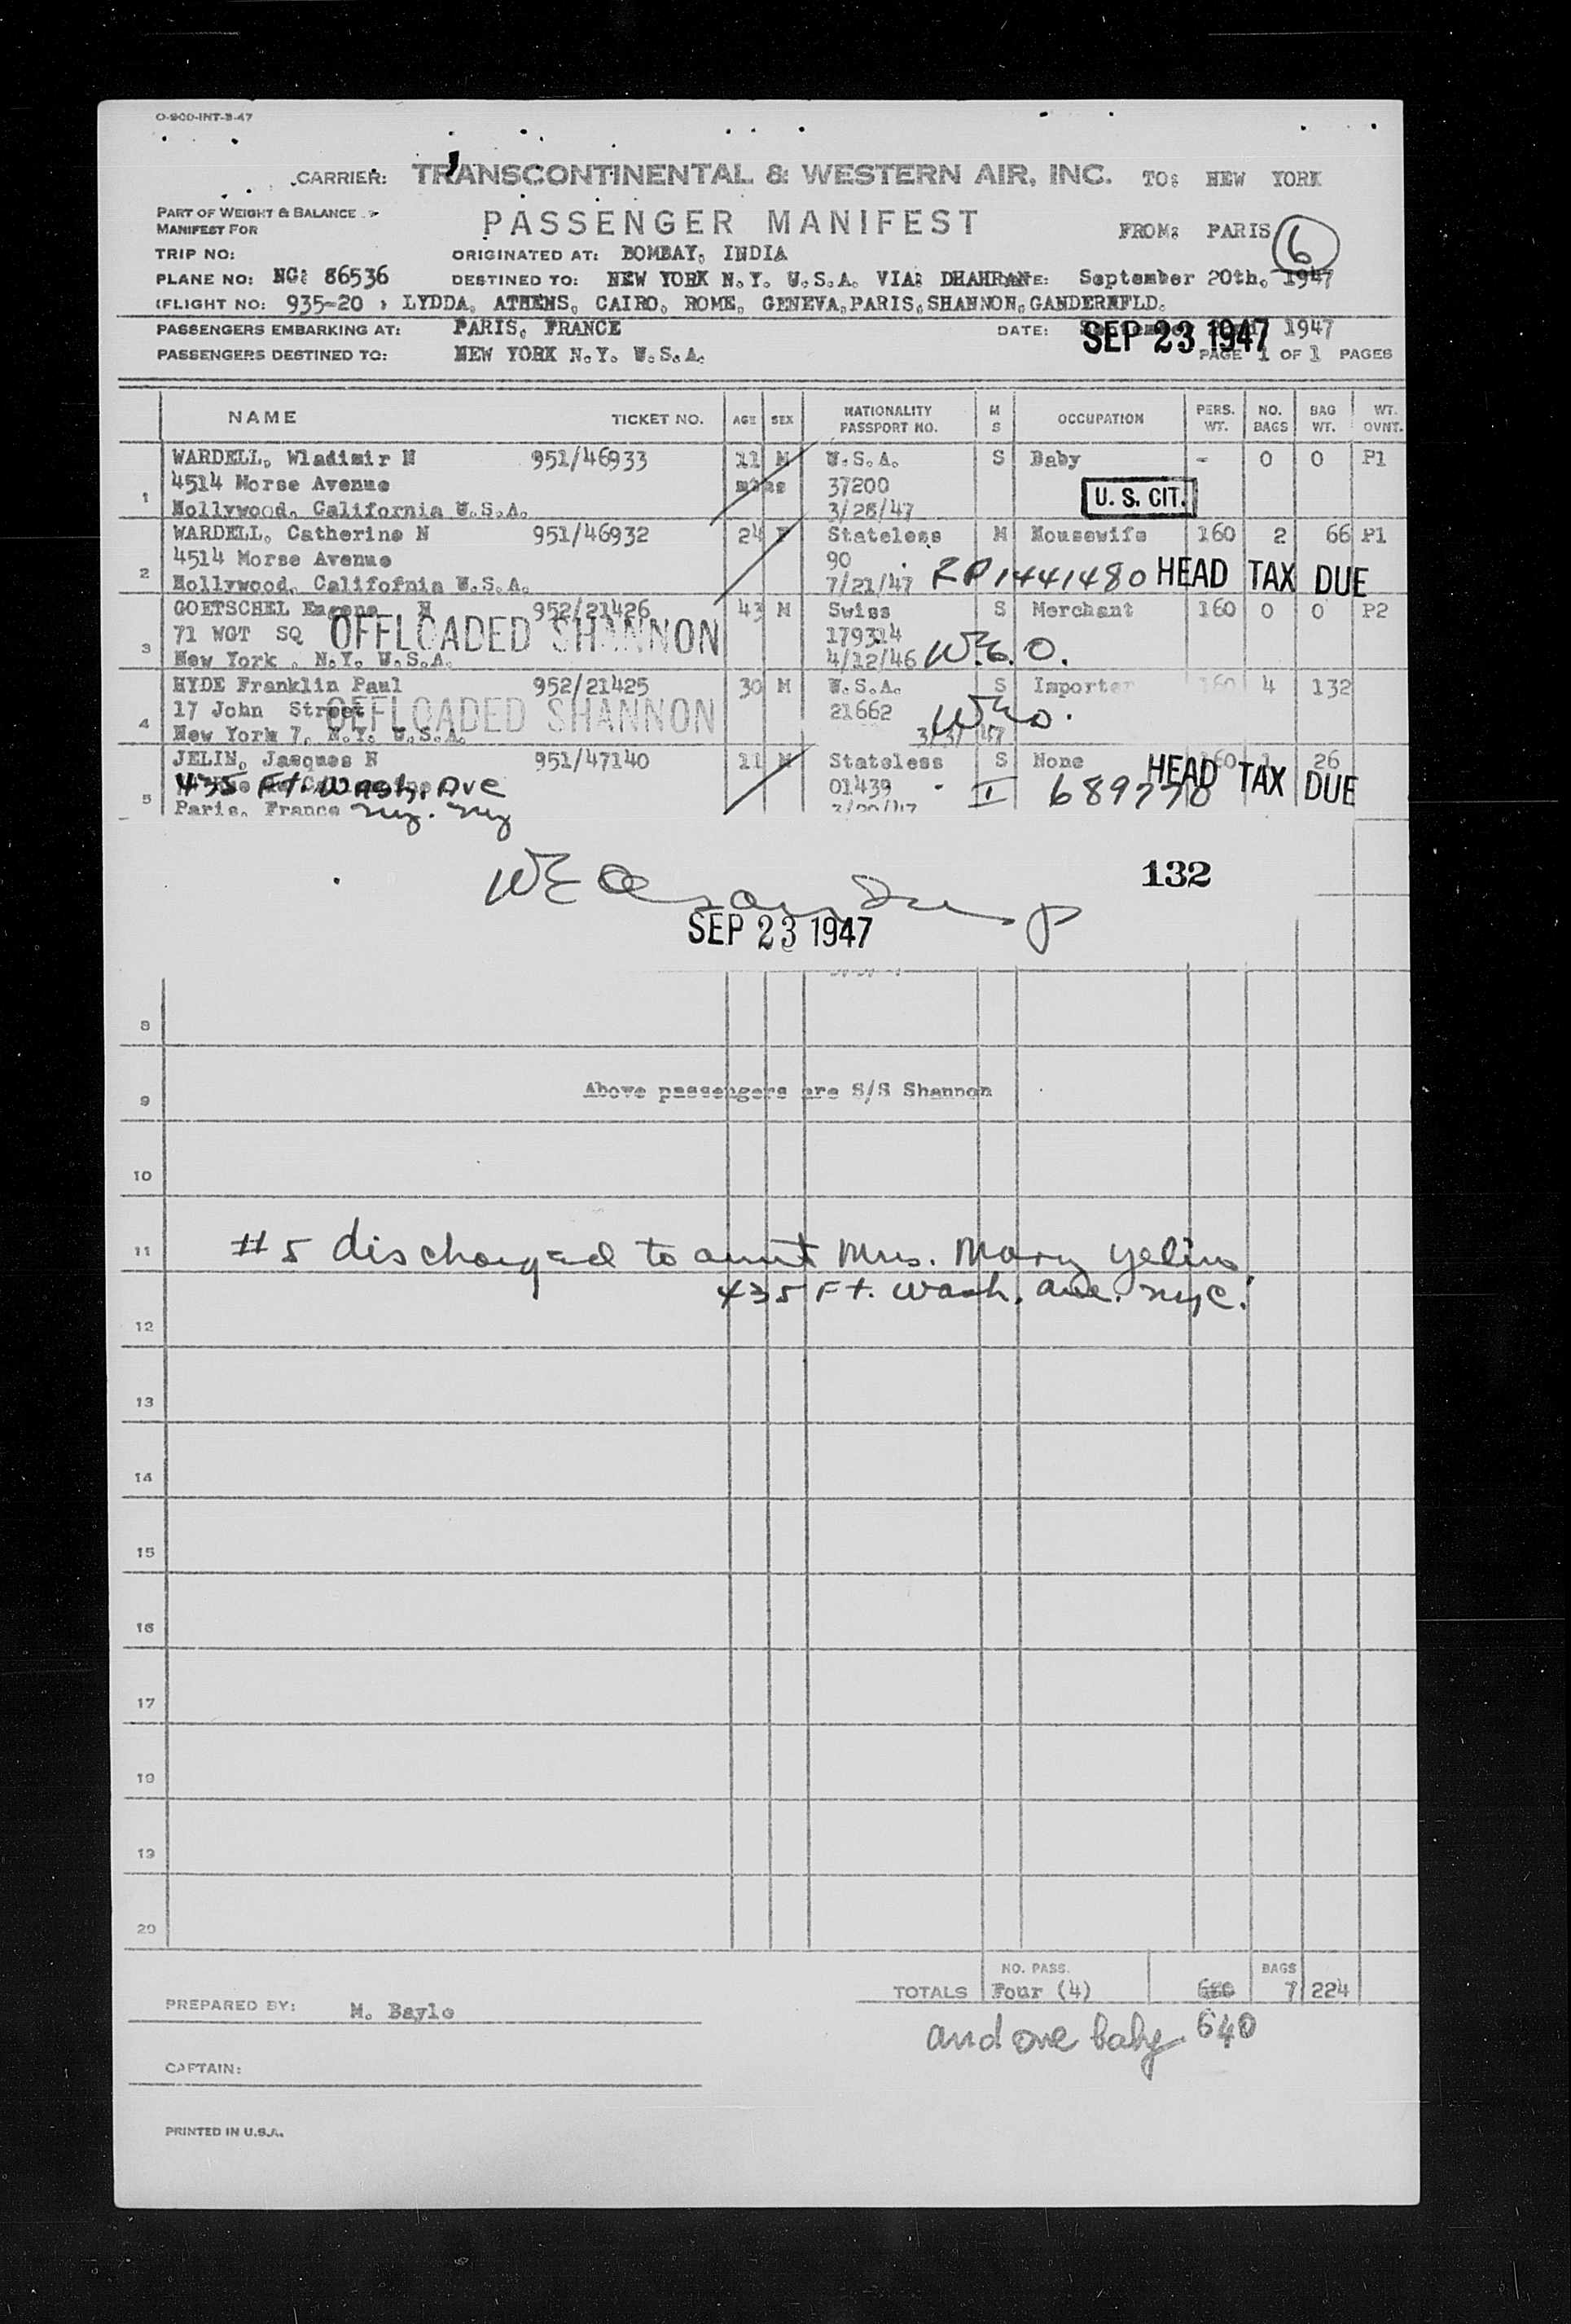 O-900-INT-3-47
CARRIER: TRANSCONTINENTAL & WESTERN AIR, INC. TO: NEW YORK
PART OF WEIGHT & BALANCE
MANIFEST FOR
PASSENGER MANIFEST FROM: PARIS 6
TRIP NO: ORIGINATED AT: BOMBAY, INDIA
PLANE NO: NC: 86536 DESTINED TO: NEW YORK N.Y. U.S.A. VIA: DHAHRAN September 20th, 1947
(FLIGHT NO: 935-20 , LYDDA, ATHENS, CAIRO, ROME, GENEVA,PARIS,SHANNON,GANDERNFLD.
PASSENGERS EMBARKING AT: PARIS, FRANCE DATE: 1947
SEP 23 1947
PASSENGERS DESTINED TO: NEW YORK N.Y. U.S.A. PAGE 1 OF 1 PAGES
NAME TICKET NO. AGE SEX NATIONALITY PASSPORT NO. M S OCCUPATION PERS. WT. NO. BAGS BAG WT. WT. OVNT.
WARDELL, Wladimir N 951/46933 11 M U.S.A. S Baby - 0 0 P1
1 4514 Morse Avenue mths 37200 U.S. CIT.
Hollywood, California U.S.A. 3/28/47
WARDELL, Catherine N 951/46932 24 F Stateless M Housewife 160 2 66 P1
2 4514 Morse Avenue 90
Hollywood, Califofnia U.S.A. 7/21/47 RP 1441480 HEAD TAX DUE
GOETSCHEL Eugene N 952/21426 43 M Swiss S Merchant 160 0 0 P2
3 71 WGT SQ OFFLOADED SHANNON 179314
New York , N.Y. U.S.A. 4/12/46 W.E.O.
HYDE Franklin Paul 952/21425 30 M U.S.A. S Importer 160 4 132
4 17 John Street OFFLOADED SHANNON 21662 WEO.
New York 7, N.Y. U.S.A.
JELIN, Jacques N 951/47140 11 M Stateless S None 160 1 26
5 435 Ft. Wash. Ave 01439 I 689770 HEAD TAX DUE
Paris, France N.Y. NY 3/20/47
132
SEP 23 1947
8
9 Above passengers are S/S Shannon
10
11 #5 discharged to aunt Mrs. Mary Yelins
435 Ft. Wash. Ave. NYC.
12
13
14
15
16
17
18
19
20
NO. PASS. BAGS
TOTALS Four (4) 7 224
PREPARED BY: M. Bayle
and one baby 640
CAPTAIN:
PRINTED IN U.S.A.